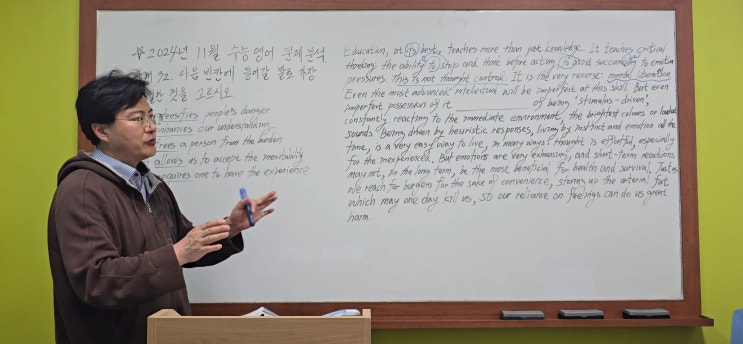 ※ 2024년 11월 수능영어 문제분석
32 다음 빈칸에 들어갈 말로 가장
것을 고르시오
intensifies people's danger
enhances our understanding
frees a person from the burden
allows us to accept the inevitability
requires one to have the experience
Education, at its best, teaches more than just knowledge. It teaches critical
thinking: the ability to stop and think before acting, to avoid succumbing to emotional
pressures. This is not thought control. It is the very reverse: mental liberation.
Even the most advanced intellectual will be imperfect at this skill. But even
imperfect possession of it __________ of being 'stimulus-driven',
constantly reacting to the immediate environment, the brightest colours or loudest
sounds. Being driven by heuristic responses, living by instinct and emotion all the
time, is a very easy way to live, in many ways: thought is effortful, especially
for the inexperienced. But emotions are very exhausting, and short-term reactions
may not, in the long term, be the most beneficial for health and survival. Just as
we reach for burgers for the sake of convenience, storing up the arterial fat
which may one day kill us, so our reliance on feelings can do us great
harm.